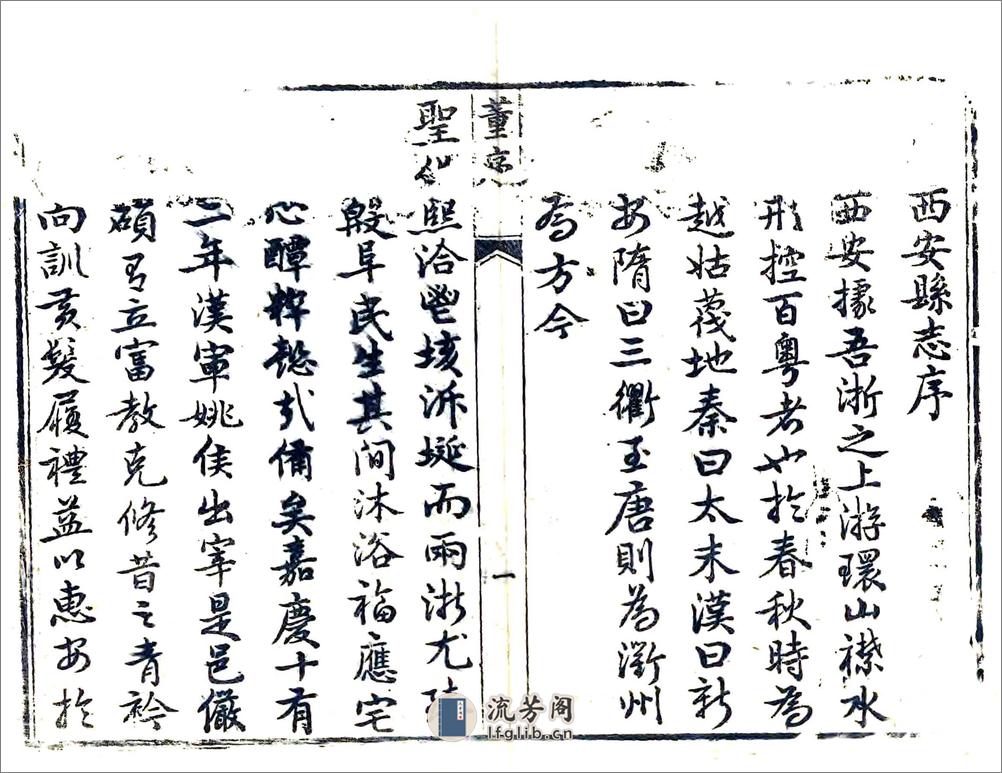 西安縣志序
西安據吾浙之上游環山襟水
形控百粵者也於春秋時為
越姑蔑地秦曰太末漢曰新
安隋曰三衢至唐則為衢州
為方今
董序
一
聖化
熙洽鬯垓泝埏而兩浙尤
殷阜民生其間沐浴福應宅
心醰粹懿弌備矣嘉慶十有
二年漢軍姚侯出宰是邑儼
碩有立富教克修昔之青衿
向訓黃髮履禮益以惠安於
流芳阁
lfglib.cn